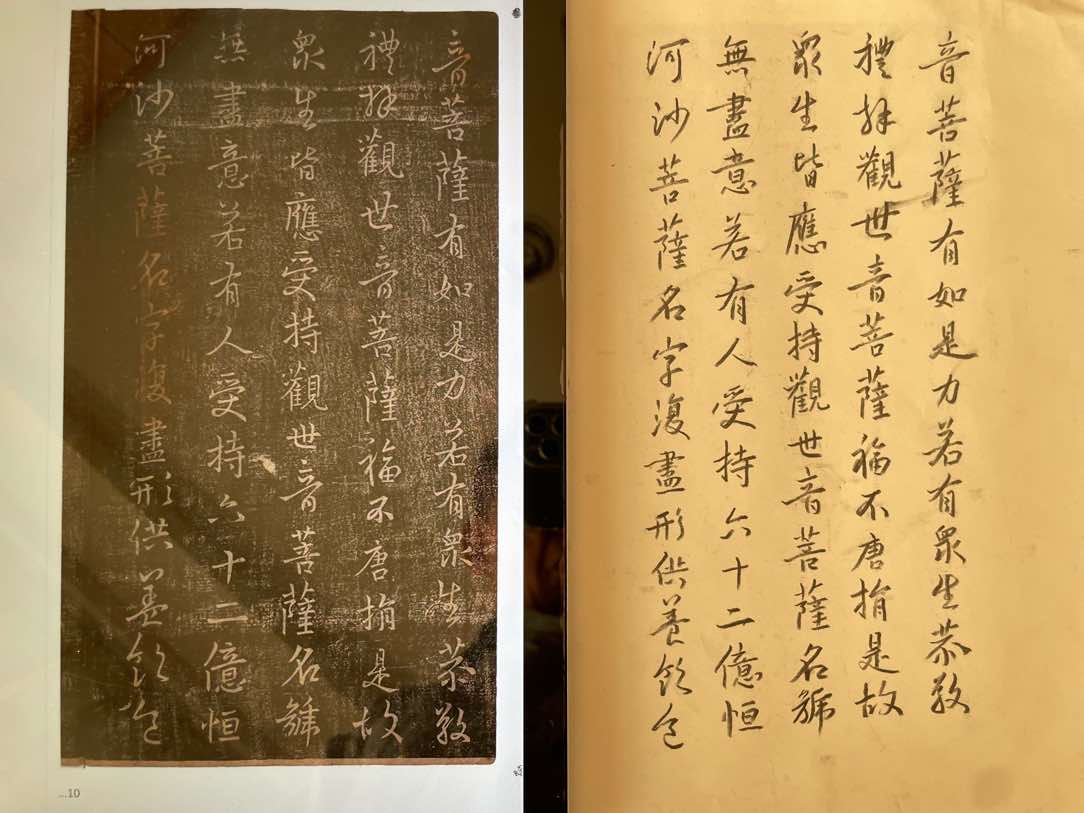 音菩薩有如是力若有眾生恭敬
禮拜觀世音菩薩福不唐捐是故
眾生皆應受持觀世音菩薩名號
無盡意若有人受持六十二億恒
河沙菩薩名字復盡形供養飲食
...10
音菩薩有如是力若有眾生恭敬
禮拜觀世音菩薩福不唐捐是故
眾生皆應受持觀世音菩薩名號
無盡意若有人受持六十二億恒
河沙菩薩名字復盡形供養飲食